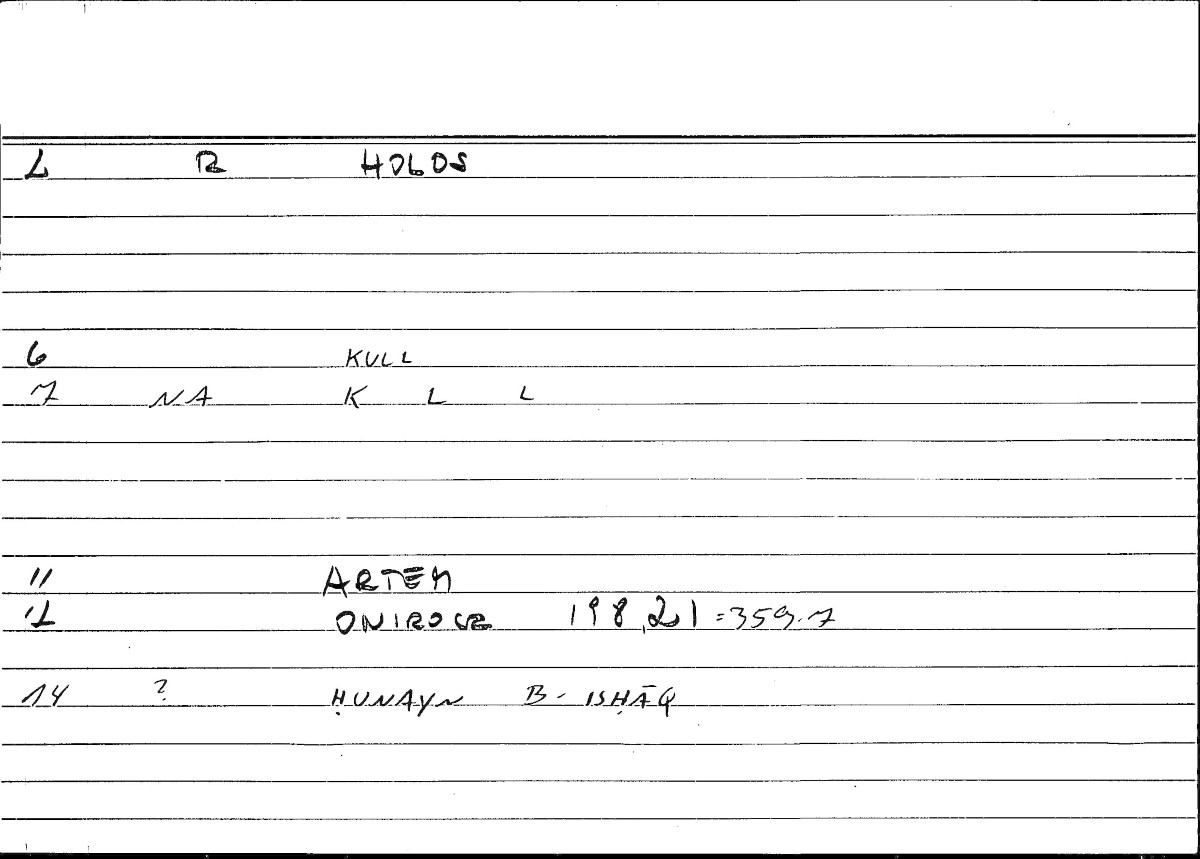 2 R HOLOS
6 KULL
7 NA K L L
11 ARTEM
12 ONIROCR 198,21=359.7
14 ? ḤUNAYN B. ISḤĀQ